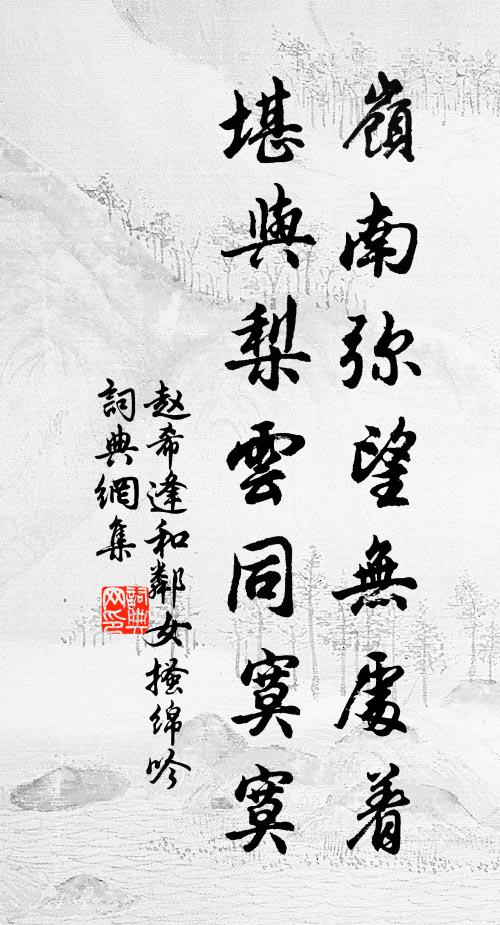 嶺南弥望無處着
堪與梨雲同寞寞
赵希逢和鄰女搔绵吟
詞典網集
詞典网印